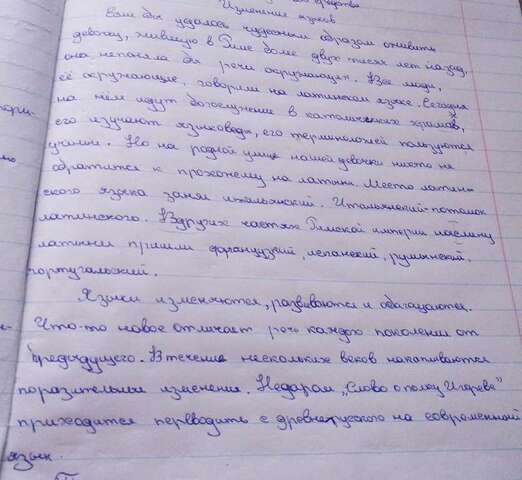 средства
Изменение языков
Если бы удалось чудесным образом оживить
девочку, жившую в Риме более двух тысяч лет назад,
она не поняла бы речи окружающих. Все люди,
её окружающие, говорили на латинском языке. Сегодня
на нём идут богослужение в католических храмах,
его изучают языковеды, его терминологией пользуются
учёные. Но на родной улице нашей девочки никто не
обратится к прохожему на латыни. Место латин-
ского языка занял итальянский. Итальянский-потомок
латинского. В других частях Римской империи на смену
латыни пришли французский, испанский, румынский,
португальский.
Языки изменяются, развиваются и обогащаются.
Что-то новое отличает речь каждого поколения от
предыдущего. В течение нескольких веков накапливаются
поразительные изменения. Недаром „Слово о полку Игореве"
приходится переводить с древнерусского на современный
язык.